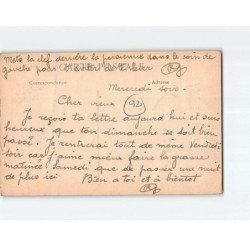 Mets la clef derrière la persienne dans le coin de
gauche pour
CARTE POSTALE
Correspondance
Adresse
Mercredi soir -
Cher vieux
92
Je reçois ta lettre aujourd'hui et suis
heureux que ton dimanche se soit bien
passé. Je rentrerai tout de même Vendredi
soir car j'aime mieux faire la grasse
matinée samedi que de passer une nuit
de plus ici
Bien à toi et à bientôt